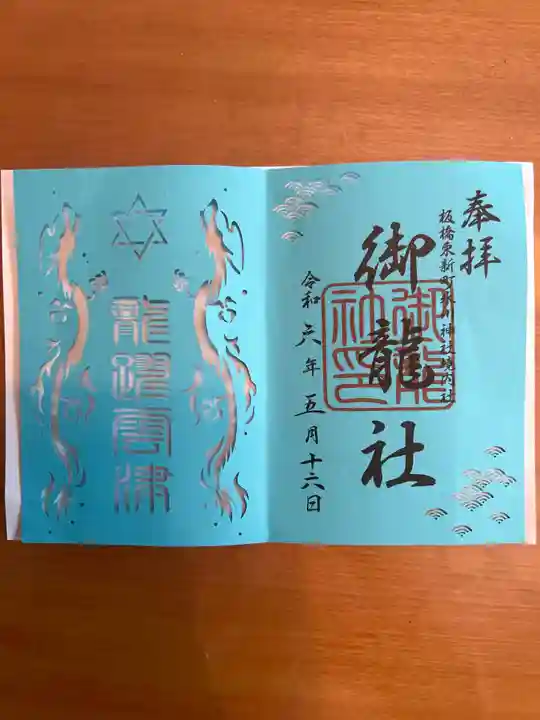 奉拝
板橋東新町氷川神社境内社
御龍社
御龍社印
令和六年五月十六日
龍躍雲津